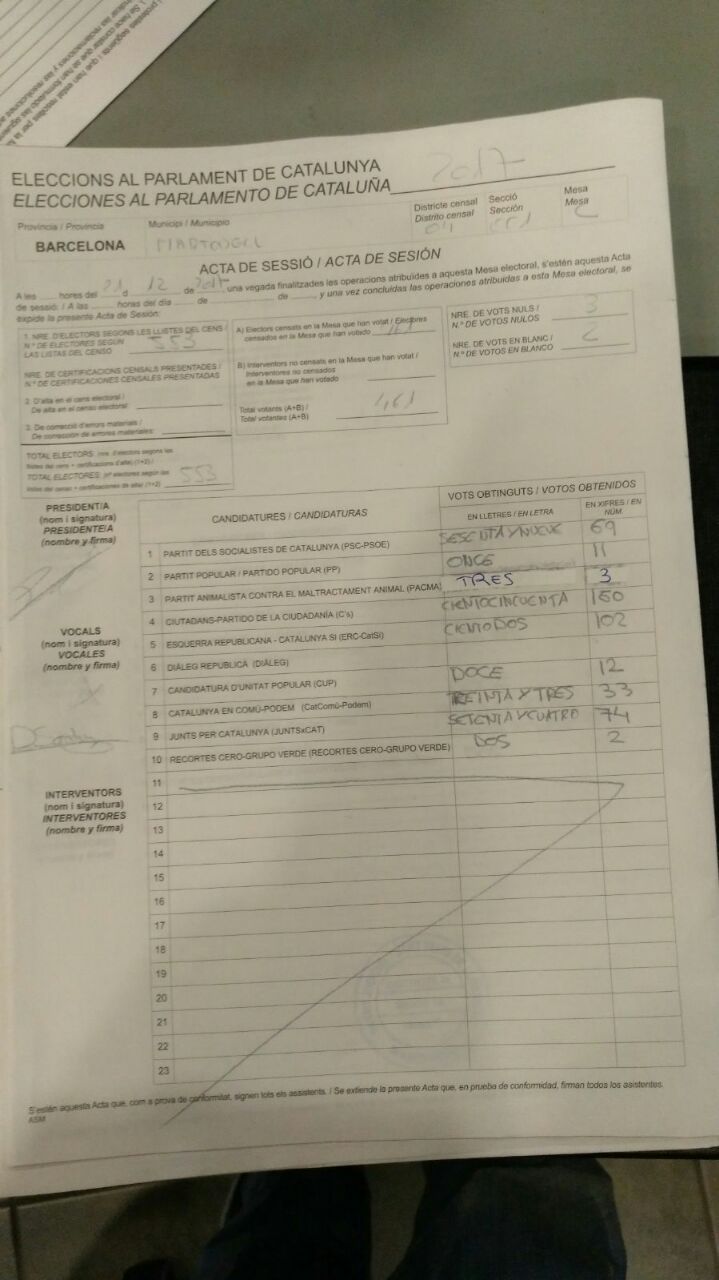 ELECCIONS AL PARLAMENT DE CATALUNYA
ELECCIONES AL PARLAMENTO DE CATALUÑA 2017
Província / Provincia
BARCELONA
Municipi / Municipio
MARTORELL
Districte censal
Distrito censal
04
Secció
Sección
001
Mesa
Mesa
C
ACTA DE SESSIÓ / ACTA DE SESIÓN
A les hores del 21 d 12 de 2017 una vegada finalitzades les operacions atribuïdes a aquesta Mesa electoral, s'estén aquesta Acta
de sessió: / A las hores del día de de , y una vez concluidas las operaciones atribuidas a esta Mesa electoral, se
expide la presente Acta de Sesión:
1. NRE. D'ELECTORS SEGONS LES LLISTES DEL CENS /
N.º DE ELECTORES SEGÚN
LAS LISTAS DEL CENSO 553
NRE. DE CERTIFICACIONS CENSALS PRESENTADES /
N.º DE CERTIFICACIONES CENSALES PRESENTADAS
2. D'alta en el cens electoral /
De alta en el censo electoral:
3. De correcció d'errors materials /
De corrección de errores materiales:
TOTAL ELECTORS (nre. d'electors segons les
llistes del cens + certificacions d'alta) (1+2) /
TOTAL ELECTORES: (nº electores según las
listas del censo + certificaciones de alta) (1+2) 553
A) Electors censats en la Mesa que han votat / Electores
censados en la Mesa que han votado 461
B) Interventors no censats en la Mesa que han votat /
Interventores no censados
en la Mesa que han votado
Total votants (A+B) /
Total votantes (A+B) 461
NRE. DE VOTS NULS /
N.º DE VOTOS NULOS 3
NRE. DE VOTS EN BLANC /
N.º DE VOTOS EN BLANCO 2
PRESIDENT/A
(nom i signatura)
PRESIDENTE/A
(nombre y firma)
VOCALS
(nom i signatura)
VOCALES
(nombre y firma)
INTERVENTORS
(nom i signatura)
INTERVENTORES
(nombre y firma)
CANDIDATURES / CANDIDATURAS
VOTS OBTINGUTS / VOTOS OBTENIDOS
EN LLETRES / EN LETRA
EN XIFRES / EN NÚM.
1 PARTIT DELS SOCIALISTES DE CATALUNYA (PSC-PSOE) SESENTA Y NUEVE 69
2 PARTIT POPULAR / PARTIDO POPULAR (PP) ONCE 11
3 PARTIT ANIMALISTA CONTRA EL MALTRACTAMENT ANIMAL (PACMA) TRES 3
4 CIUTADANS-PARTIDO DE LA CIUDADANÍA (C's) CIENTOCINCUENTA 150
5 ESQUERRA REPUBLICANA - CATALUNYA SI (ERC-CatSí) CIENTO DOS 102
6 DIÀLEG REPUBLICÀ (DIÀLEG)
7 CANDIDATURA D'UNITAT POPULAR (CUP) DOCE 12
8 CATALUNYA EN COMÚ-PODEM (CatComú-Podem) TREINTA Y TRES 33
9 JUNTS PER CATALUNYA (JUNTSxCAT) SETENTA Y CUATRO 74
10 RECORTES CERO-GRUPO VERDE (RECORTES CERO-GRUPO VERDE) DOS 2
11
12
13
14
15
16
17
18
19
20
21
22
23
S'estén aquesta Acta que, com a prova de conformitat, signen tots els assistents. / Se extiende la presente Acta que, en prueba de conformidad, firman todos los asistentes.
ASM